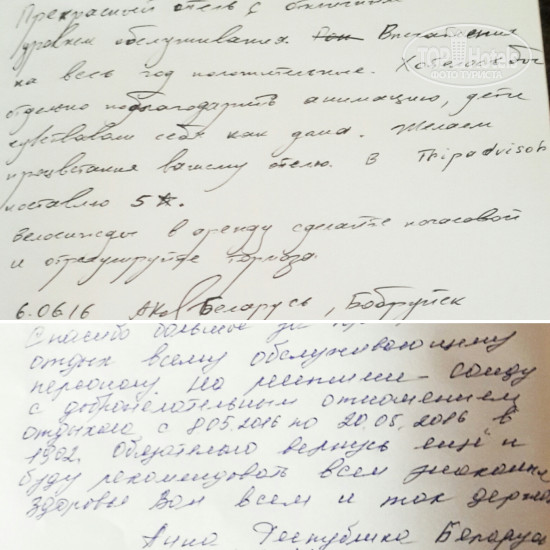 Прекрасный отель с отличным
уровнем обслуживания. Впечатления
на весь год положительные. Хотелось бы
отдельно поблагодарить анимацию, дети
чувствовали себя как дома. Желаем
процветания вашему отелю. В Tripadvisor
поставлю 5★.
Велосипеды в аренду сделайте почасовой
и отрегулируйте тормоза.
6.06.16 Беларусь, Бобруйск
TOP Hotels
ФОТО ТУРИСТА
Спасибо большое за
отдых всему обслуживающему
персоналу. На ресепшен
с доброжелательным отношением
отдыхала с 8.05.2016 по 20.05.2016 в
1902. Обязательно вернусь ещё и
буду рекомендовать всем знакомым
Здоровья Вам всем и так держать
Анна Республика Беларусь